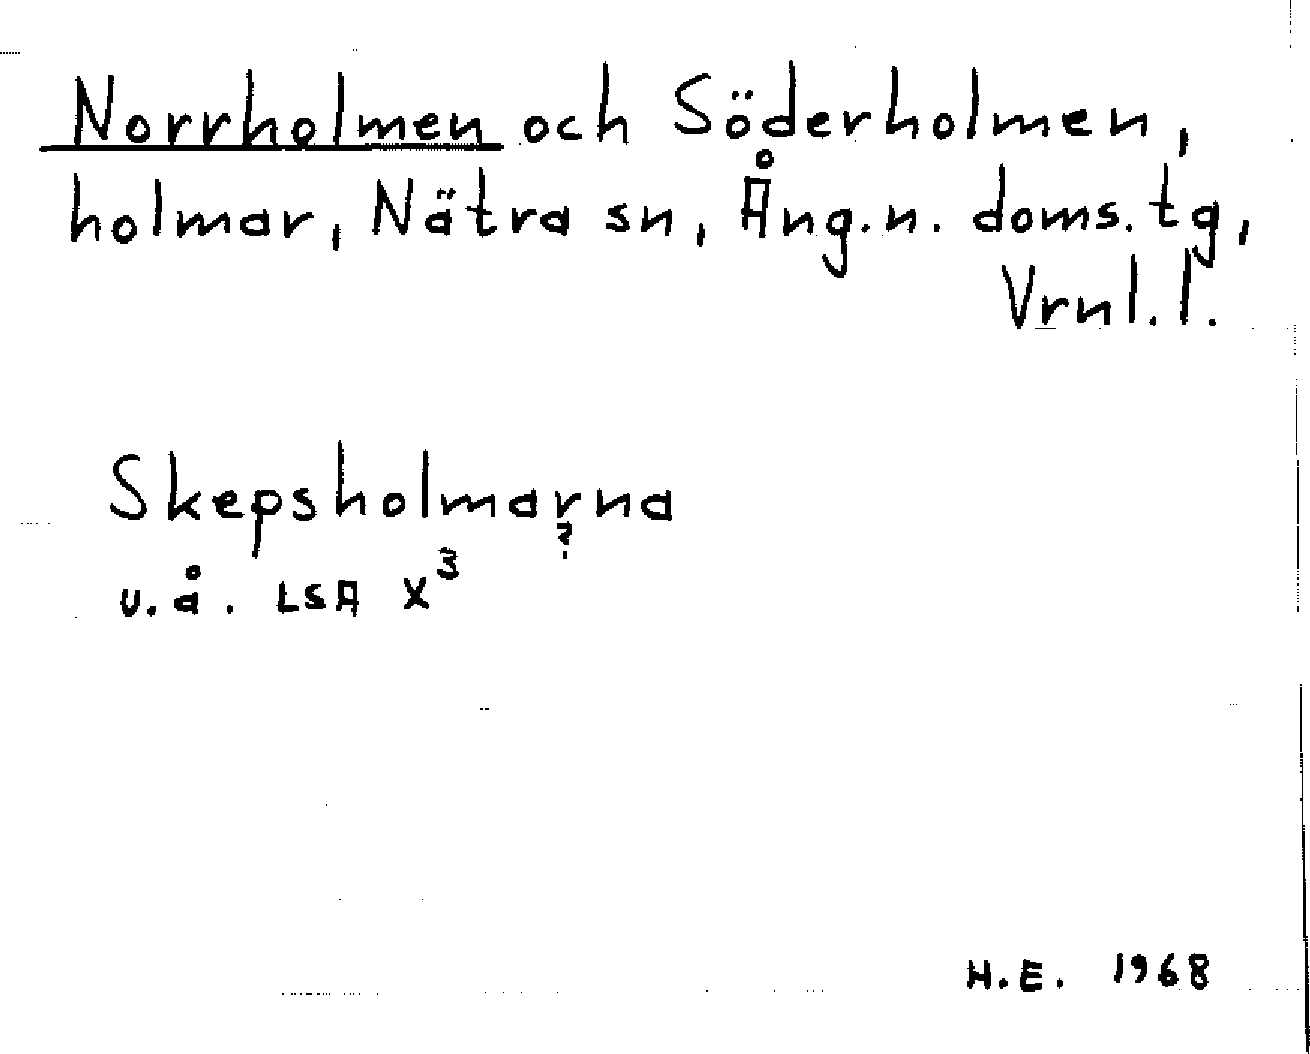 Norrholmen och Söderholmen,
holmar, Nätra sn, Ång.n. doms.tg,
Vrnl.l.
Skepsholmarna
?
u.å. LSA X³
H.E. 1968